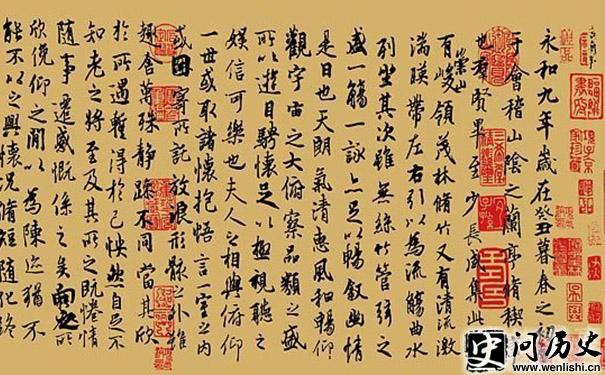 永和九年歲在癸丑暮春之初
于會稽山陰之蘭亭脩稧
也群賢畢至少長咸集此
有崇山峻領茂林脩竹又有清流激
湍暎帶左右引以為流觴曲水
列坐其次雖無絲竹管弦之
盛一觴一詠亦足以暢敘幽情
是日也天朗氣清惠風和暢仰
觀宇宙之大俯察品類之盛
所以遊目騁懷足以極視聽之
娛信可樂也夫人之相與俯仰
一世或取諸懷抱悟言一室之內
或因寄所託放浪形骸之外雖
趣舍萬殊靜躁不同當其欣
於所遇暫得於己怏然自足不
知老之將至及其所之既惓情
隨事遷感慨係之矣向之所
欣俛仰之閒以為陳迹猶不
能不以之興懷況脩短隨化終
问历史
www.wenlishi.cn